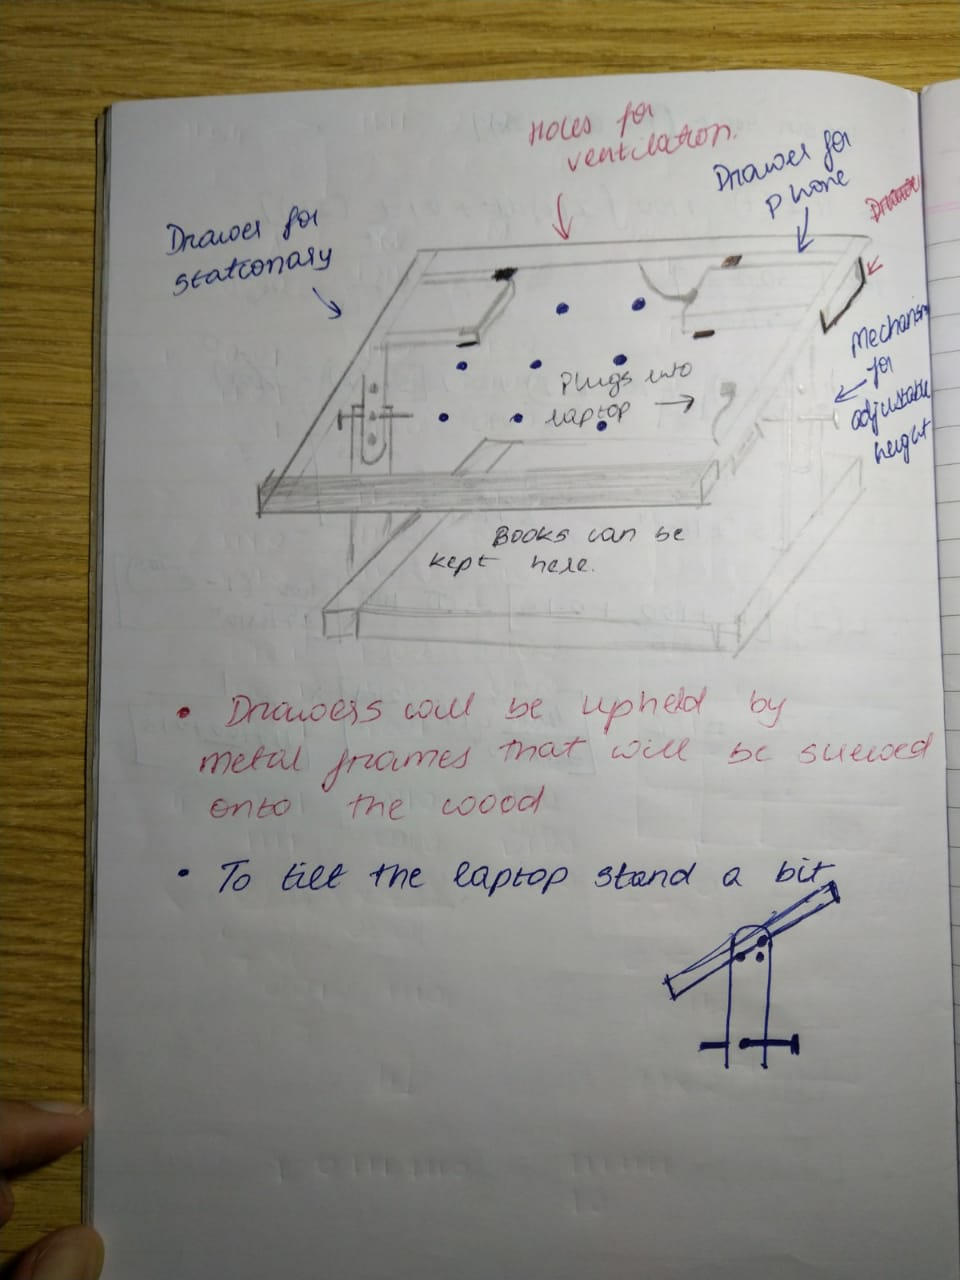 Holes for
ventilation.
Drawer for
phone
Drawer
Drawer for
stationary
Mechanism
for
adjustable
height
Plugs into
laptop
Books can be
kept here.
• Drawers will be upheld by
metal frames that will be
onto the wood
• To tilt the laptop stand a bit